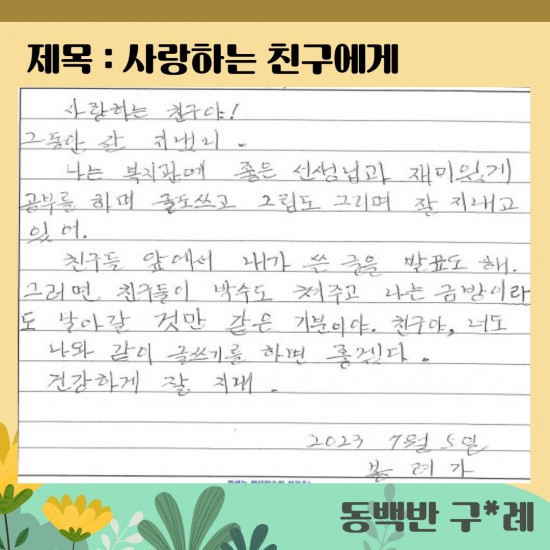 제목 : 사랑하는 친구에게
사랑하는 친구야!
그동안 잘 지냈니.
나는 복지관에 좋은 선생님과 재미있게
공부를 하며 글도쓰고 그림도 그리며 잘 지내고
있어.
친구들 앞에서 내가 쓴 글을 발표도 해.
그러면 친구들이 박수도 쳐주고 나는 금방이라
도 날아갈 것만 같은 기분이야. 친구야, 너도
나와 같이 글쓰기를 하면 좋겠다.
건강하게 잘 지내.
2023 7월 5일
동백반 구*례